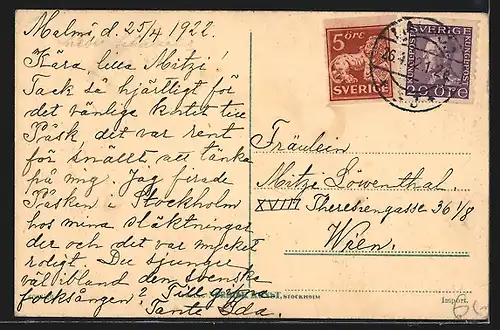 Malmö, d. 25/4 1922.
Kära lilla Mitzi!
Tack så hjärtligt för
det vänliga kortet till
Påsk, det var rent
för snällt, att tänka
på mig. Jag firade
Påsken i Stockholm
hos mina släktningar
der och det var mycket
roligt. Du sjunger
väl ibland den svenska
folksången? Tillgifna
Tante Ida.
5 ÖRE
SVERIGE
SVERIGE
20 ÖRE
Fräulein
Mitzi Löwenthal.
XVIII Theresiengasse 36 1/8
Wien.
STOCKHOLM
Import.